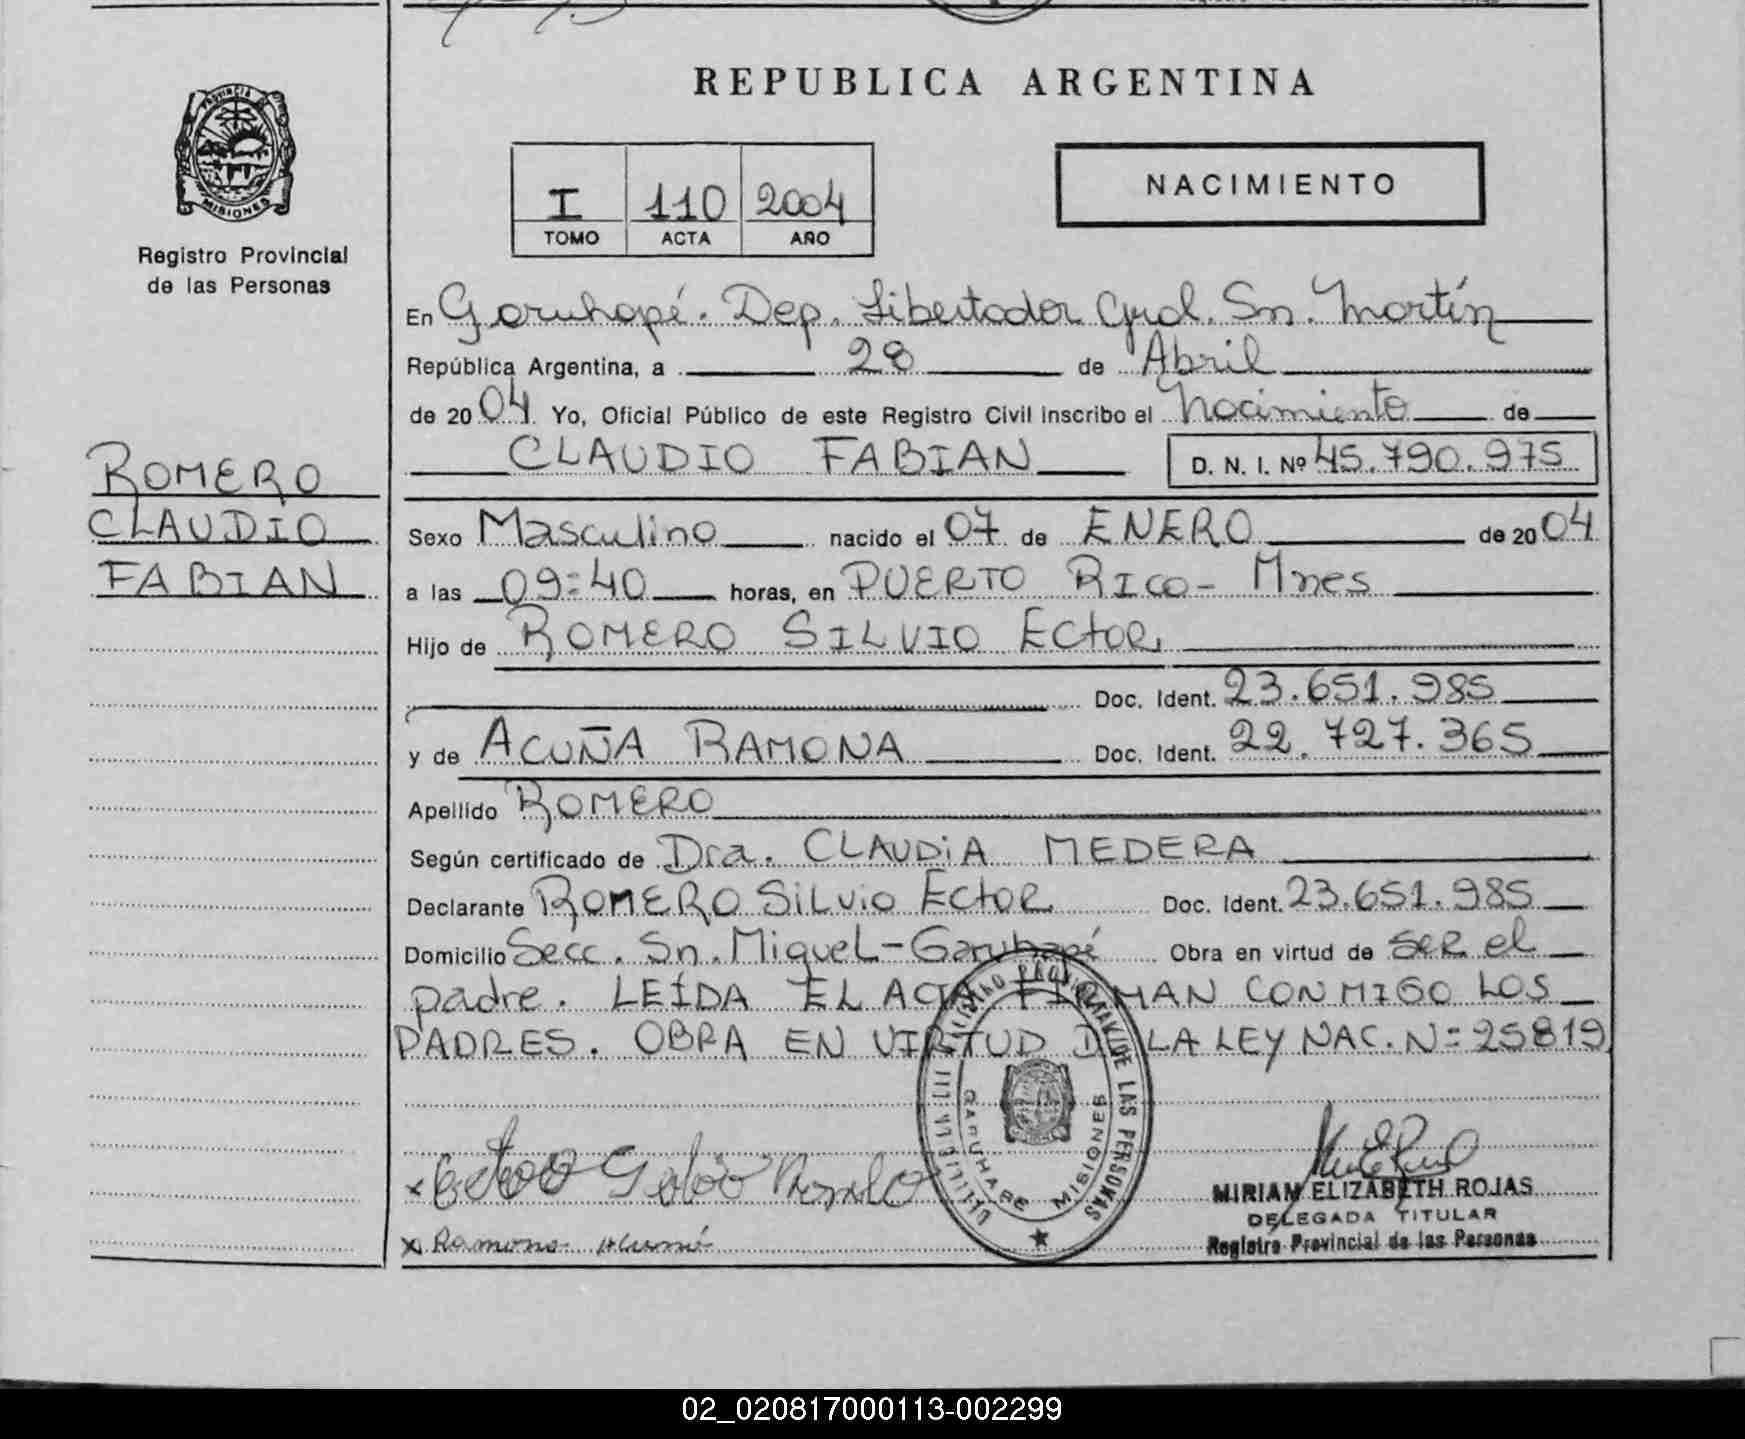 REPUBLICA ARGENTINA
PROVINCIA DE
MISIONES
Registro Provincial
de las Personas
I 110 2004
TOMO ACTA AÑO
NACIMIENTO
En Garuhapé. Dep. Libertador Gral. Sn. Martín
República Argentina, a 28 de Abril
de 2004 Yo, Oficial Público de este Registro Civil inscribo el Nacimiento de
CLAUDIO FABIAN D. N. I. Nº 45.790.975
ROMERO
CLAUDIO
FABIAN
Sexo Masculino nacido el 07 de ENERO de 2004
a las 09:40 horas, en PUERTO RICO - Mnes
Hijo de ROMERO SILVIO ECtOR
Doc. Ident. 23.651.985
y de ACUÑA RAMONA Doc. Ident. 22.727.365
Apellido ROMERO
Según certificado de Dra. CLAUDIA MEDERA
Declarante ROMERO SILVIO ECtOR Doc. Ident. 23.651.985
Domicilio Secc. Sn. Miguel - Garuhapé Obra en virtud de ser el
padre. LEÍDA EL ACTA FIRMAN CONMIGO LOS
PADRES. OBRA EN VIRTUD DE LA LEY NAC. Nº 25819
REGISTRO PROVINCIAL DE LAS PERSONAS
GARUHAPE MISIONES
MIRIAM ELIZABETH ROJAS
DELEGADA TITULAR
Registro Provincial de las Personas
x Ramona Acuña
02_020817000113-002299